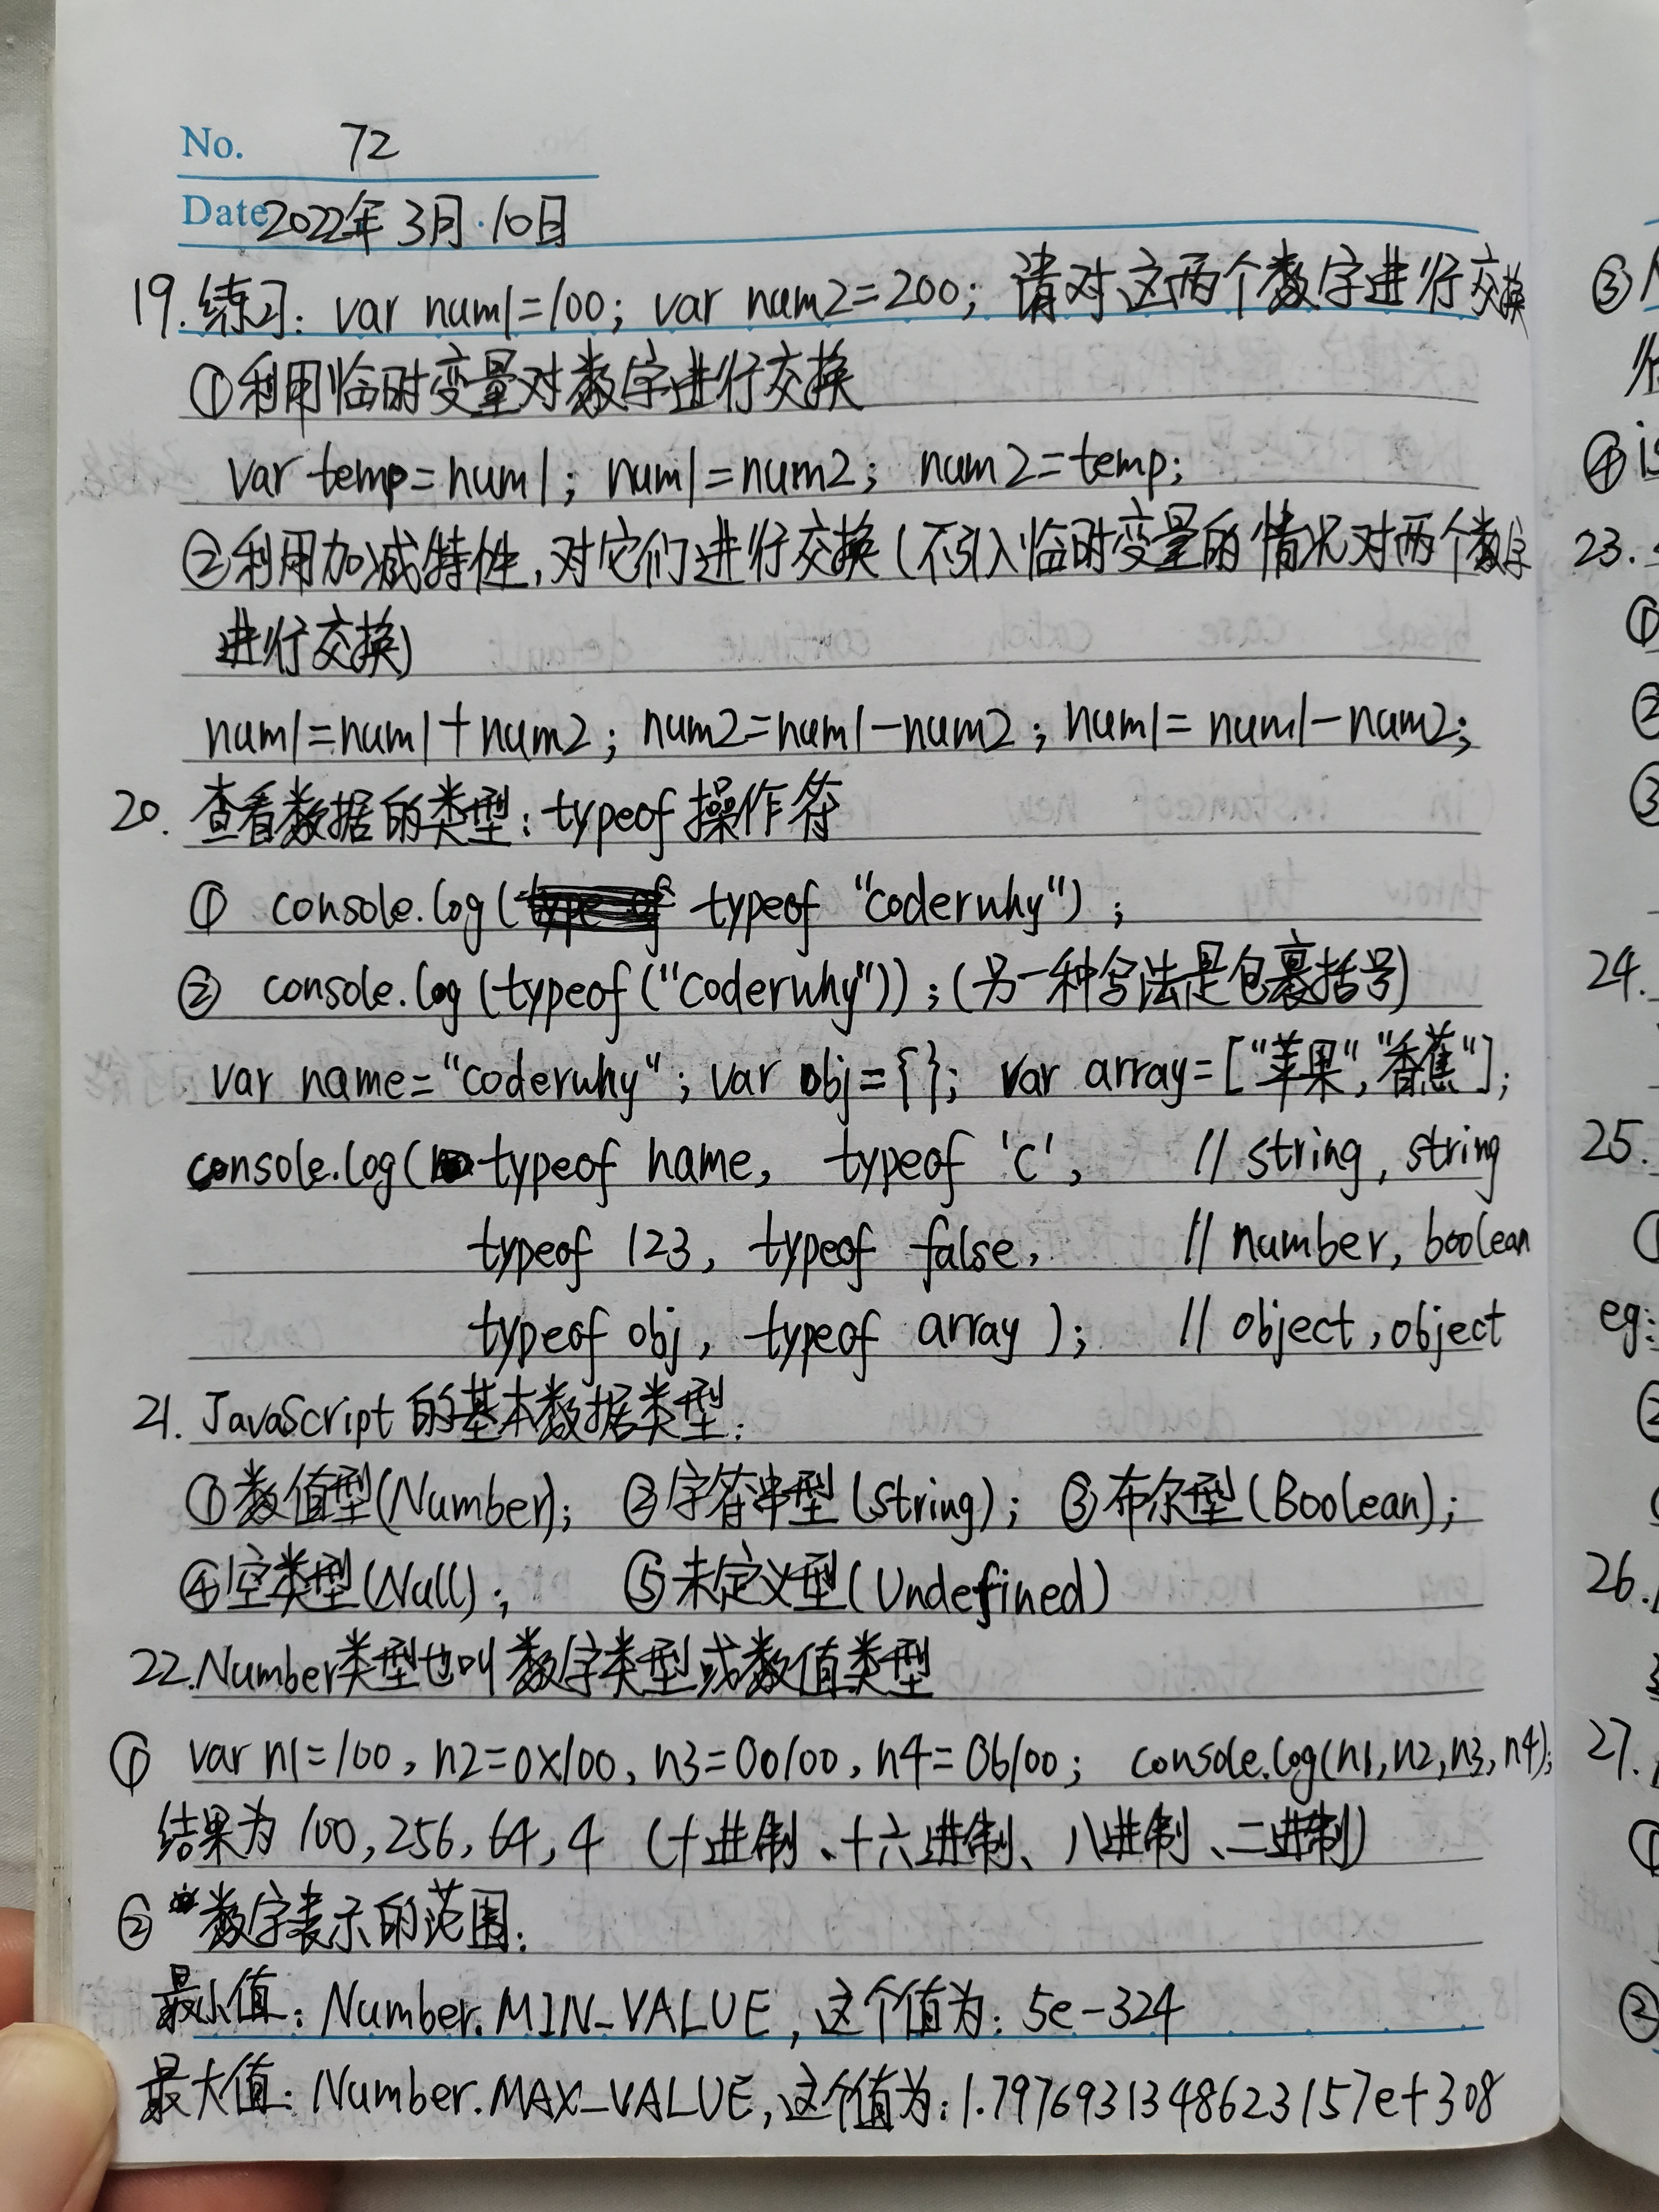 No. 72
Date 2022年3月·10日
19.练习: var num1=100; var num2=200; 请对这两个数字进行交换
①利用临时变量对数字进行交换
var temp=num1; num1=num2; num2=temp;
②利用加减特性,对它们进行交换(不引入临时变量的情况对两个数字
进行交换)
num1=num1+num2; num2=num1-num2; num1=num1-num2;
20. 查看数据的类型: typeof 操作符
① console.log( typeof "coderwhy") ;
② console.log(typeof("coderwhy")); (另一种写法是包裹括号)
var name="coderwhy"; var obj={}; var array=["苹果","香蕉"];
console.log( typeof name, typeof 'c', // string, string
typeof 123, typeof false, // number, boolean
typeof obj, typeof array ); // object, object
21. JavaScript的基本数据类型:
①数值型(Number); ②字符串型(String); ③布尔型(Boolean);
④空类型(Null); ⑤未定义型(Undefined)
22.Number类型也叫数字类型或数值类型
① var n1=100, n2=0x100, n3=0o100, n4=0b100; console.log(n1,n2,n3,n4);
结果为 100, 256, 64, 4 (十进制、十六进制、八进制、二进制)
② *数字表示的范围:
最小值: Number.MIN_VALUE, 这个值为: 5e-324
最大值: Number.MAX_VALUE, 这个值为: 1.7976931348623157e+308
③
④ is
23.
①
②
③
24.
25.
①
eg:
②
26.
27.
①
②